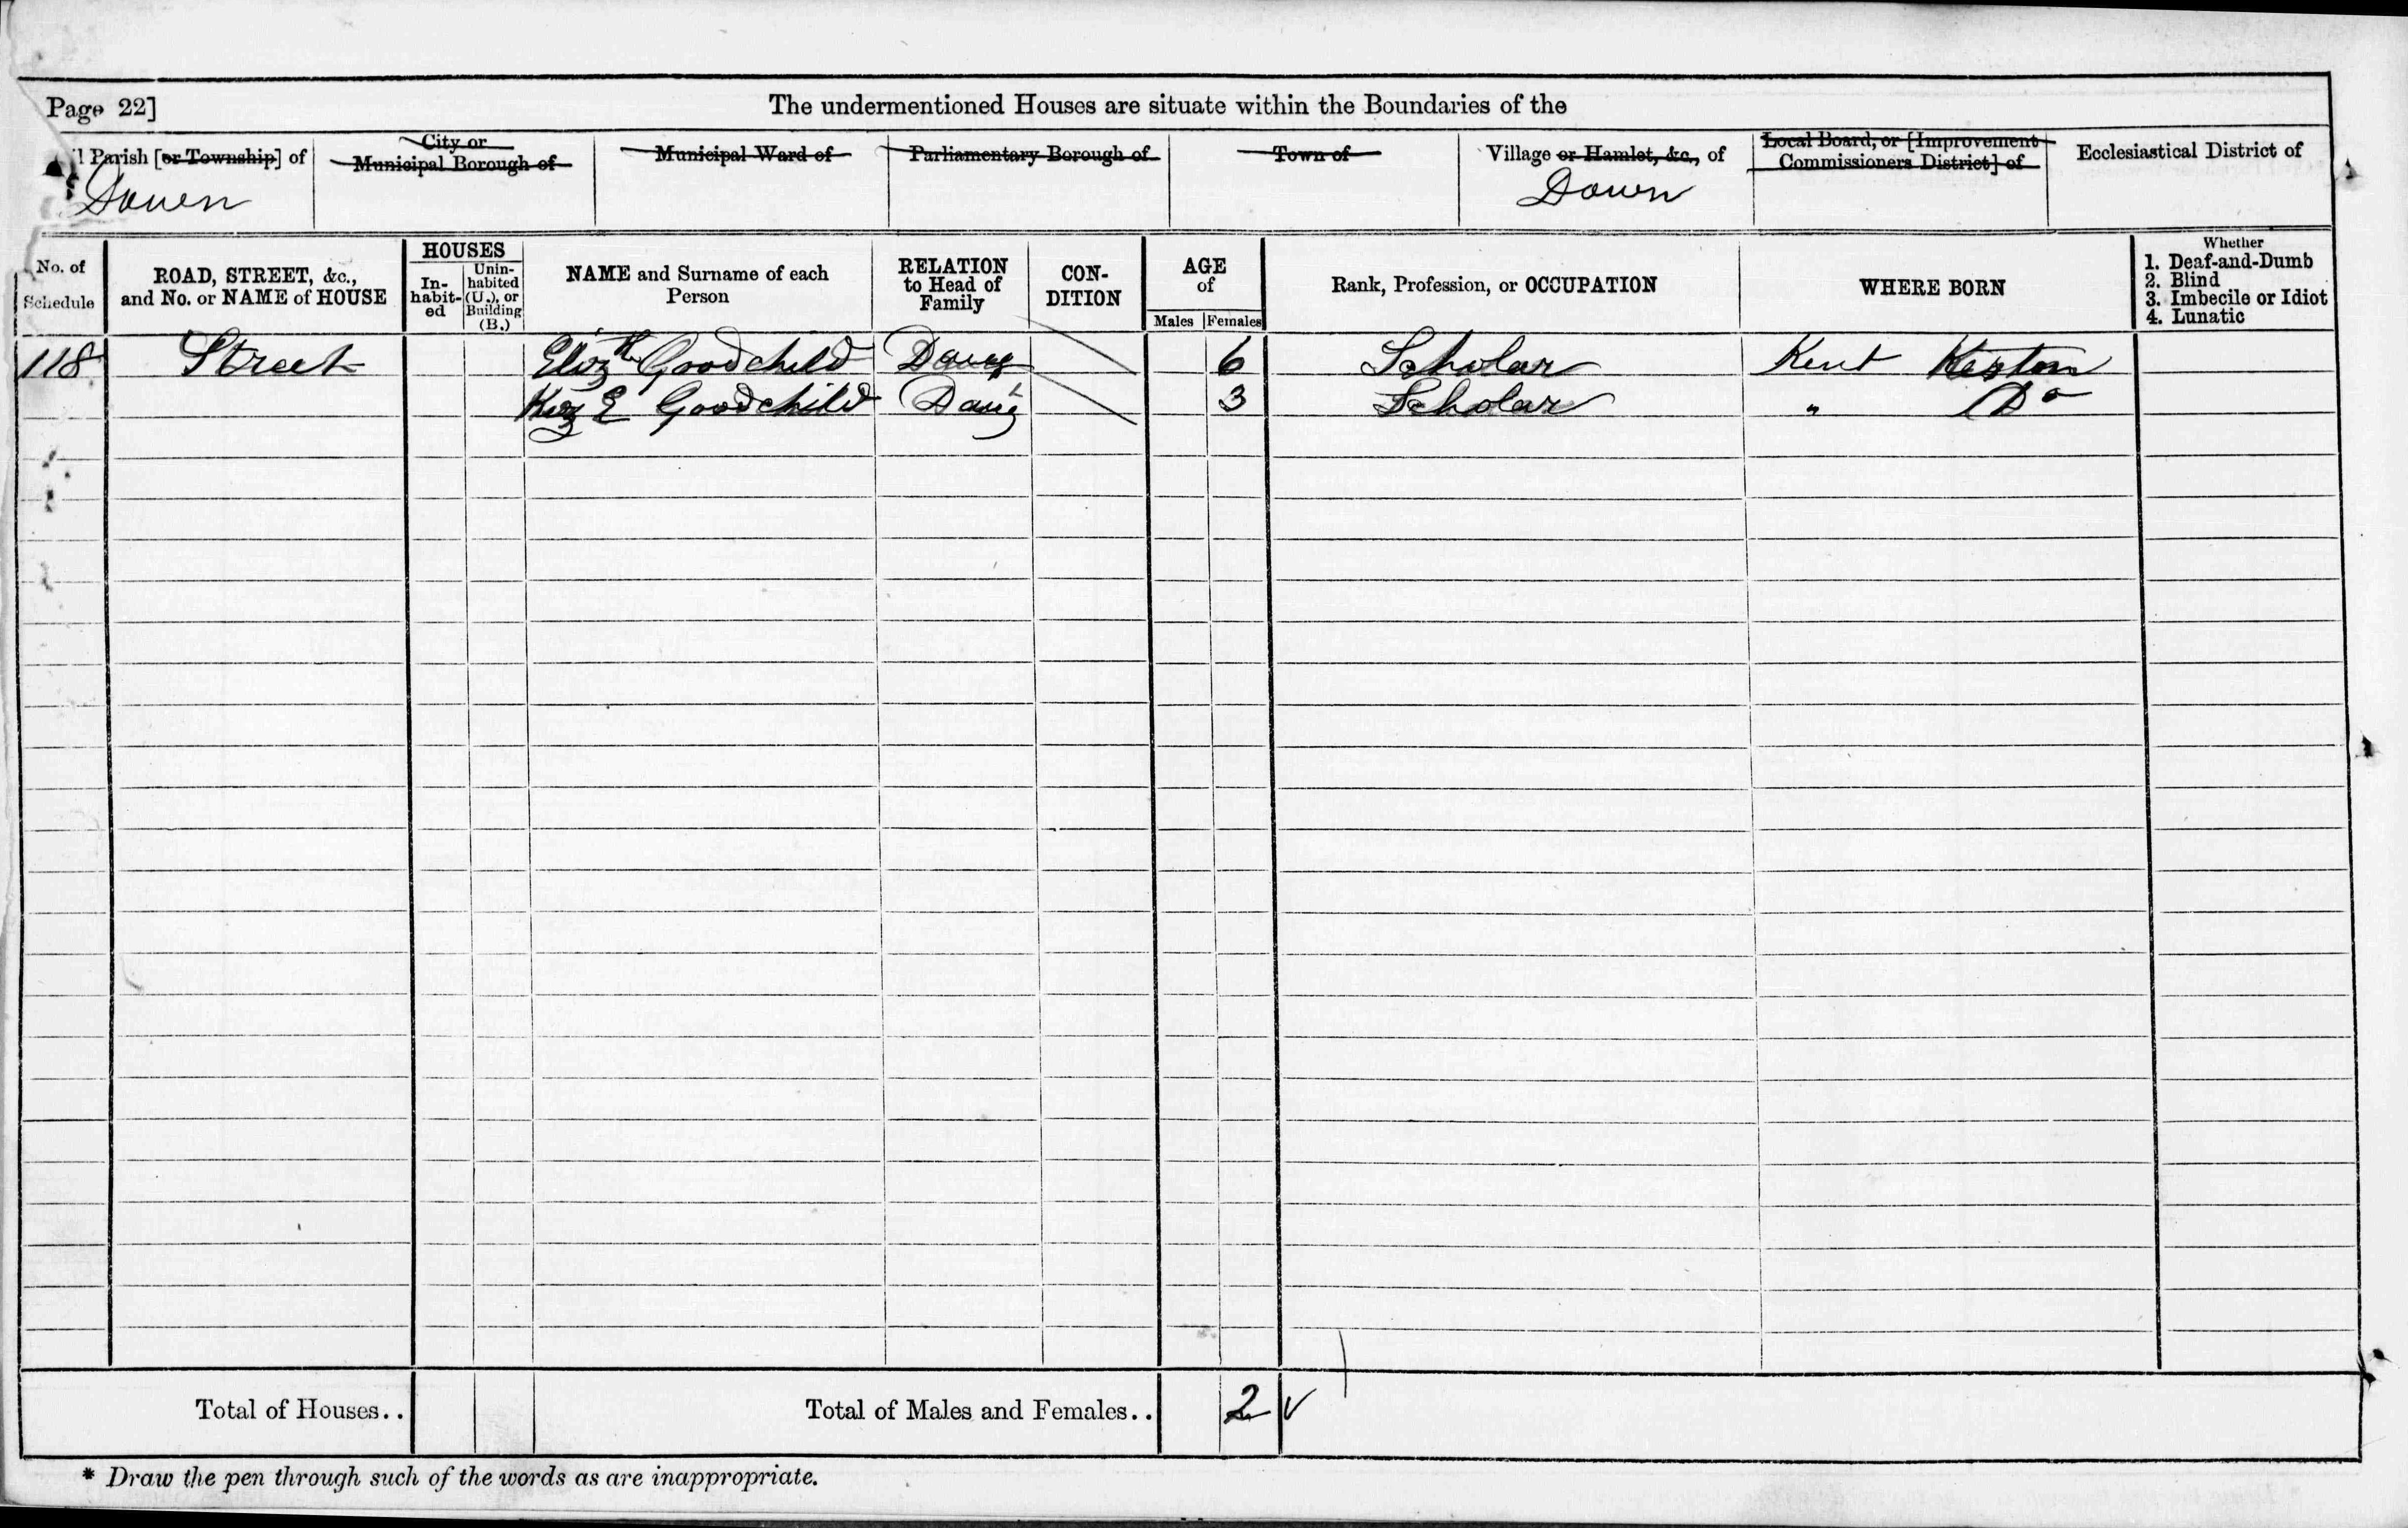 Page 22]
The undermentioned Houses are situate within the Boundaries of the
l Parish [or Township] of
City or
Municipal Borough of
Municipal Ward of
Parliamentary Borough of
Town of
Village or Hamlet, &c., of
Local Board, or [Improvement
Commissioners District] of
Ecclesiastical District of
Down
Down
No. of
Schedule
ROAD, STREET, &c.,
and No. or NAME of HOUSE
HOUSES
In-
habit-
ed
Unin-
habited
(U.), or
Building
(B.)
NAME and Surname of each
Person
RELATION
to Head of
Family
CON-
DITION
AGE
of
Males Females
Rank, Profession, or OCCUPATION
WHERE BORN
Whether
1. Deaf-and-Dumb
2. Blind
3. Imbecile or Idiot
4. Lunatic
118 Street Elizth Goodchild Daug 6 Scholar Kent Keston
E Goodchild Daug 3 Scholar " Do
Total of Houses..
Total of Males and Females.. 2
* Draw the pen through such of the words as are inappropriate.